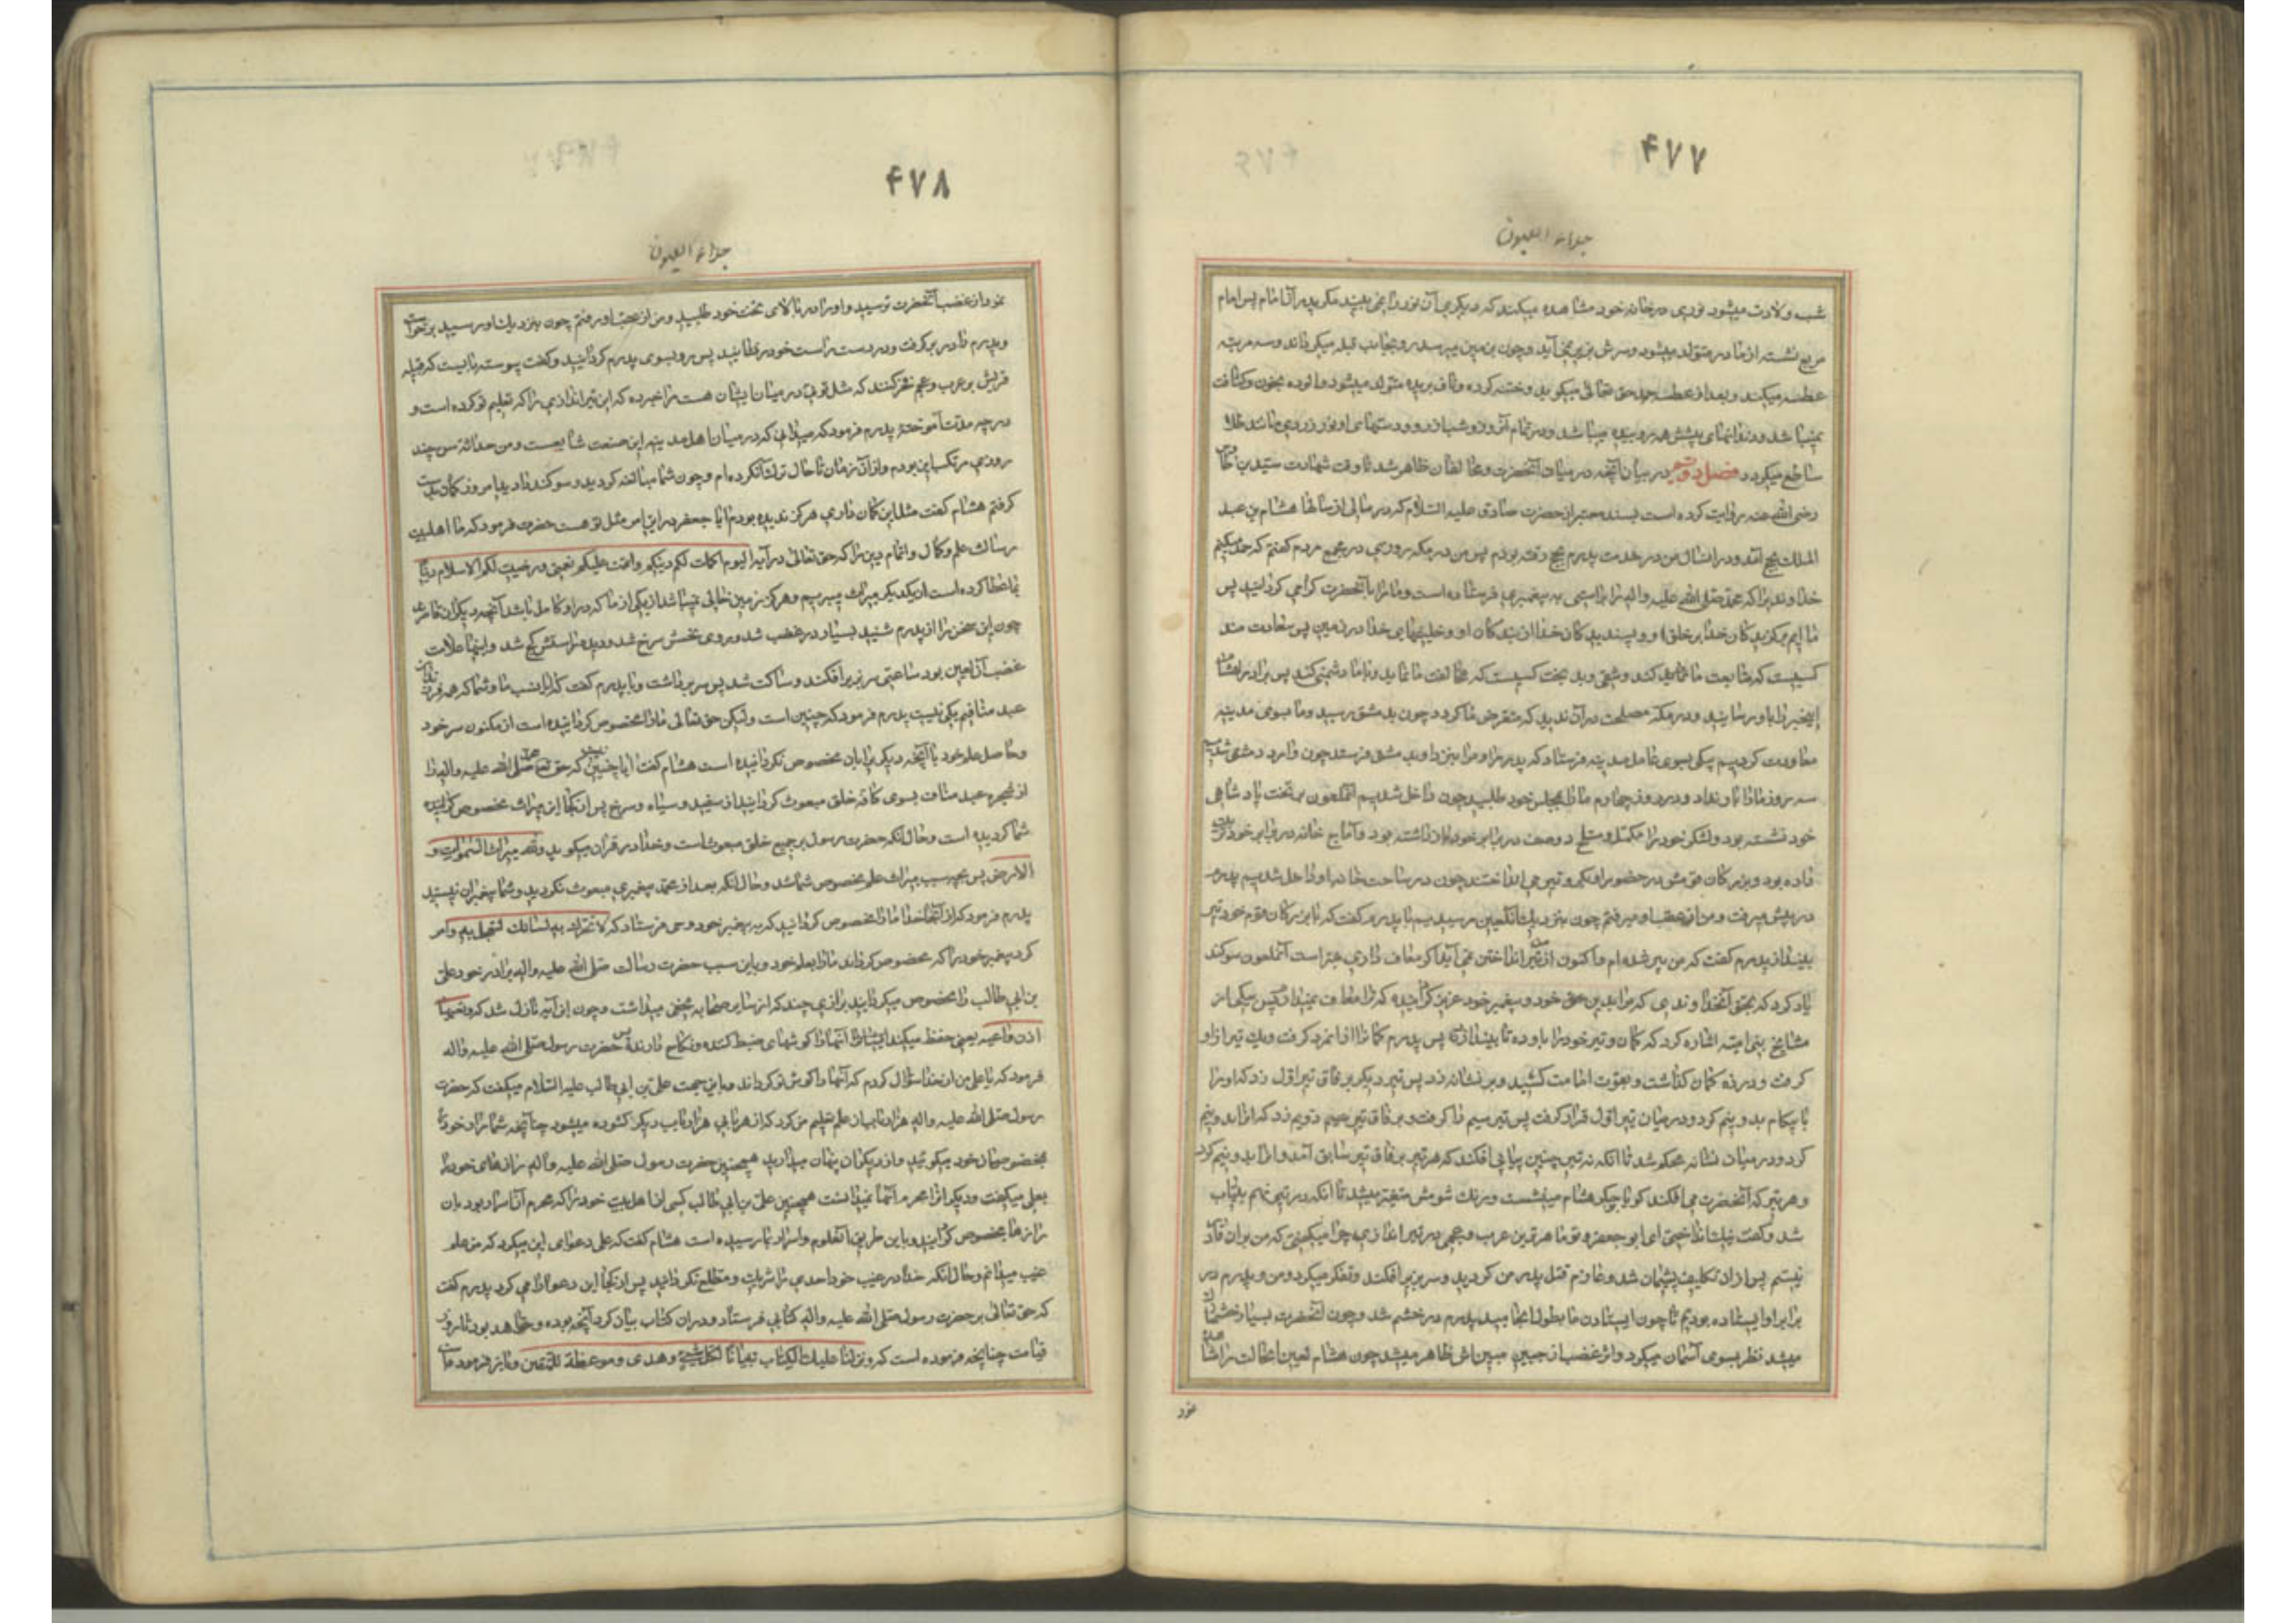 ۴۷۷
جلاء العیون
شب ولادت میشود نوری در خانه خود مشاهده میکند که دیگری آن نور را نمی بیند مگر پدر آن امام پس امام
مربع نشسته از مادر متولد میشود و سرش بزیر نمی آید و چون بزمین میرسد رو بجانب قبله میگرداند و سه مرتبه
عطسه میکند و بعد از عطسه حمد حق تعالی میگوید و ختنه کرده و ناف بریده متولد میشود و آلوده بخون و کثافت
نمیباشد و دندانهای پیشش همه روییده میباشد و در تمام آن روز و شب از رو و دستهای او نور زردی مانند طلا
ساطع میگردد فصل دویم در بیان آنچه در میان آنحضرت و مخالفان ظاهر شد تا وقت شهادت سید بن طاوس
رضی الله عنه روایت کرده است بسند معتبر از حضرت صادق علیه السلام که در سالی از سالها هشام بن عبد
الملک بحج آمد و در انسال من در خدمت پدرم بحج رفته بودم پس من در مکه روزی در مجمع مردم گفتم که حمد میکنم
خداوندیرا که محمد صلی الله علیه واله را براستی به پیغمبری فرستاده است و ما را بآنحضرت گرامی گردانید پس
ما ایم برگزیدگان خدا بر خلق و پسندیدگان خدا از بندگان او و خلیفهای خدا در زمین پس سعادت مند
کسیست که متابعت ما نماید و شقی و بد بخت کسیست که مخالفت ما نماید و با ما دشمنی کند پس برادر هشام
اینخبر را باو رسانید و در مکه مصلحت در آن ندید که متعرض ما گردد و چون بدمشق رسید و ما بسوی مدینه
معاودت کردیم پیکی بسوی عامل مدینه فرستاد که پدرم را و مرا بنزد او بدمشق فرستد چون وارد دمشق شدیم
سه روز ما را بار نداد و در روز چهارم ما را بمجلس خود طلبید چون داخل شدیم آنملعون بر تخت پادشاهی
خود نشسته بود و لشکر خود را مکمل و مسلح دو صف در برابر خود بازداشته بود و آماج خانه در برابر خود ترتیب
داده بود و بزرگان قومش در حضور او گرو تیر می انداختند چون در ساحت خانه او داخل شدیم پدرم
در پیش میرفت و من از عقب او میرفتم چون بنزدیک آنلعین رسیدیم با پدرم گفت که با بزرگان قوم خود تیر
بینداز پدرم گفت که من پیر شده ام و اکنون از من تیر انداختن نمی آید اگر معاف داری بهتر است آنملعون سوگند
یاد کرد که بحق آنخداوندی که مرا بدین حق خود و پیغمبر خود عزیز گردانیده که ترا معاف نمیدارم پس بیکی از
مشایخ بنی امیه اشاره کرد که کمان و تیر خود را باو ده تا بیندازد پس پدرم کمانرا از انمرد گرفت و یک تیر از او
گرفت و در زه کمان گذاشت و بقوت امامت کشید و بر نشانه زد پس تیر دیگر بر فاق تیر اول زد که او را
با پیکان بدو نیم کرد و در میان تیر اول قرار گرفت پس تیر سیم را گرفت و بر فاق تیر دویم زد که انرا بدو نیم
کرد و در میان نشانه محکم شد تا آنکه نه تیر چنین پیاپی افکند که هر تیر بر فاق تیر سابق آمد و انرا بدو نیم کرد
و هر تیر که آنحضرت می افکند گویا بر جگر هشام مینشست و رنگ شومش متغیر میشد تا انکه در تیر نهم بیتاب
شد و گفت نیک انداختی ای ابو جعفر و تو ماهرترین عرب و عجمی در تیر اندازی چرا میگفتی که من بران قادر
نیستم پس از ان تکلیف پشیمان شد و عازم قتل پدر من گردید و سر بزیر افکند و تفکر میکرد و من و پدرم در
برابر او ایستاده بودیم تا چون ایستادن ما بطول انجامید پدرم در خشم شد و چون آنحضرت بسیار خشمناک
میشد نظر بسوی آسمان میکرد و اثر غضب از جبین مبین اش ظاهر میشد چون هشام لعین انحالت را مشاهده
نمود
۴۷۸
جلاء العیون
نمود از غضب آنحضرت ترسید و او را بر بالای تخت خود طلبید و من از عقب او رفتم چون بنزدیک او رسید برخواست
و پدرم را در بر گرفت و در دست راست خود نشانید پس رو بسوی پدرم گردانید و گفت پیوسته بایست که قبیله
قریش بر عرب و عجم فخر کنند که مثل توئی در میان ایشان هست مرا خبر ده که این تیر اندازی را که تعلیم تو کرده است و
در چه مدت آموختهٔ پدرم فرمود که میدانی که در میان اهل مدینه این صنعت شایعست و من در حداثة سن چند
روزی مرتکب این بودم و از آن زمان تا حال ترک آن کرده ام و چون شما مبالغه کردید و سوگند دادید امروز کمان بدست
گرفتم هشام گفت مثل این کمان داری هرگز ندیده بودم ایا جعفر در این امر مثل تو هست حضرت فرمود که ما اهلبیت
رسالت علم و کمال و اتمام دین را که حق تعالی در آیه الیوم اکملت لکم دینکم و اتممت علیکم نعمتی و رضیت لکم الاسلام دینا
بما عطا کرده است از یکدیگر میراث میبریم و هرگز زمین خالی نمیباشد از یکی از ما که در او کامل باشد آنچه دیگران قاصرند
چون این سخن را از پدرم شنید بسیار در غضب شد و روی نحسش سرخ شد و دیده راستش کج شد و اینها علامت
غضب آن لعین بود ساعتی سر بزیر افکند و ساکت شد پس سر برداشت و با پدرم گفت که ایا نسب ما و شما که همه فرزندان
عبد منافیم یکی نیست پدرم فرمود که چنین است و لیکن حق تعالی ما را مخصوص گردانیده است از مکنون سر خود
و خالص علم خود با آنچه دیگری را بان مخصوص نگردانیده است هشام گفت ایا چنین نیست که حق تعالی محمد صلی الله علیه واله را
از شجره عبد مناف بسوی کافه خلق مبعوث گردانید از سفید و سیاه و سرخ پس از کجا این میراث مخصوص گردیده
شما گردیده است و حال انکه حضرت رسول بر جمیع خلق مبعوث است و خدا در قران میگوید و لله میراث السموات و
الارض پس بچه سبب میراث علم مخصوص شما شد و حال انکه بعد از محمد پیغمبری مبعوث نگردید و شما پیغمبران نیستید
پدرم فرمود که از آنجا خدا ما را مخصوص گردانید که به پیغمبر خود وحی فرستاد که لا تحرک به لسانک لتعجل به و امر
کرد پیغمبر خود را که مخصوص گرداند ما را بعلم خود و باین سبب حضرت رسالت صلی الله علیه واله برادر خود علی
بن ابی طالب را مخصوص میگردانید برازی چند که از سایر صحابه مخفی میداشت و چون این آیه نازل شد که و تعیها
اذن واعیه یعنی حفظ میکند انها را گوشهای ضبط کننده و نگاه دارنده پس حضرت رسول صلی الله علیه واله
فرمود که یا علی من از خدا سؤال کردم که آنها را گوش تو گرداند و باین جهت علی بن ابی طالب علیه السلام میگفت که حضرت
رسول صلی الله علیه واله هزار باب از علم تعلیم من کرد که از هر بابی هزار باب دیگر گشوده میشود چنانچه شما راز خود را
بمخصوصان خود میگوئید و از دیگران پنهان میدارید همچنین حضرت رسول صلی الله علیه واله رازهای خود را
بعلی میگفت و دیگران را محرم آنها نمیدانست همچنین علی بن ابی طالب کسی از اهل بیت خود را که محرم آن اسرار بود بان
رازها مخصوص گردانید و باین طریق آن علوم و اسرار بما رسیده است هشام گفت که علی دعوای این میکرد که من علم
غیب میدانم و حال انکه خدا در غیب خود احدی را شریک و مطلع نگردانید پس از کجا این دعوا را می کرد پدرم گفت
که حق تعالی بر حضرت رسول صلی الله علیه واله کتابی فرستاد و دران کتاب بیان کرد آنچه بوده و خواهد بود تا روز
قیامت چنانچه فرموده است که و نزلنا علیک الکتاب تبیانا لکل شیء و هدی و موعظة للمتقین و باز فرمود